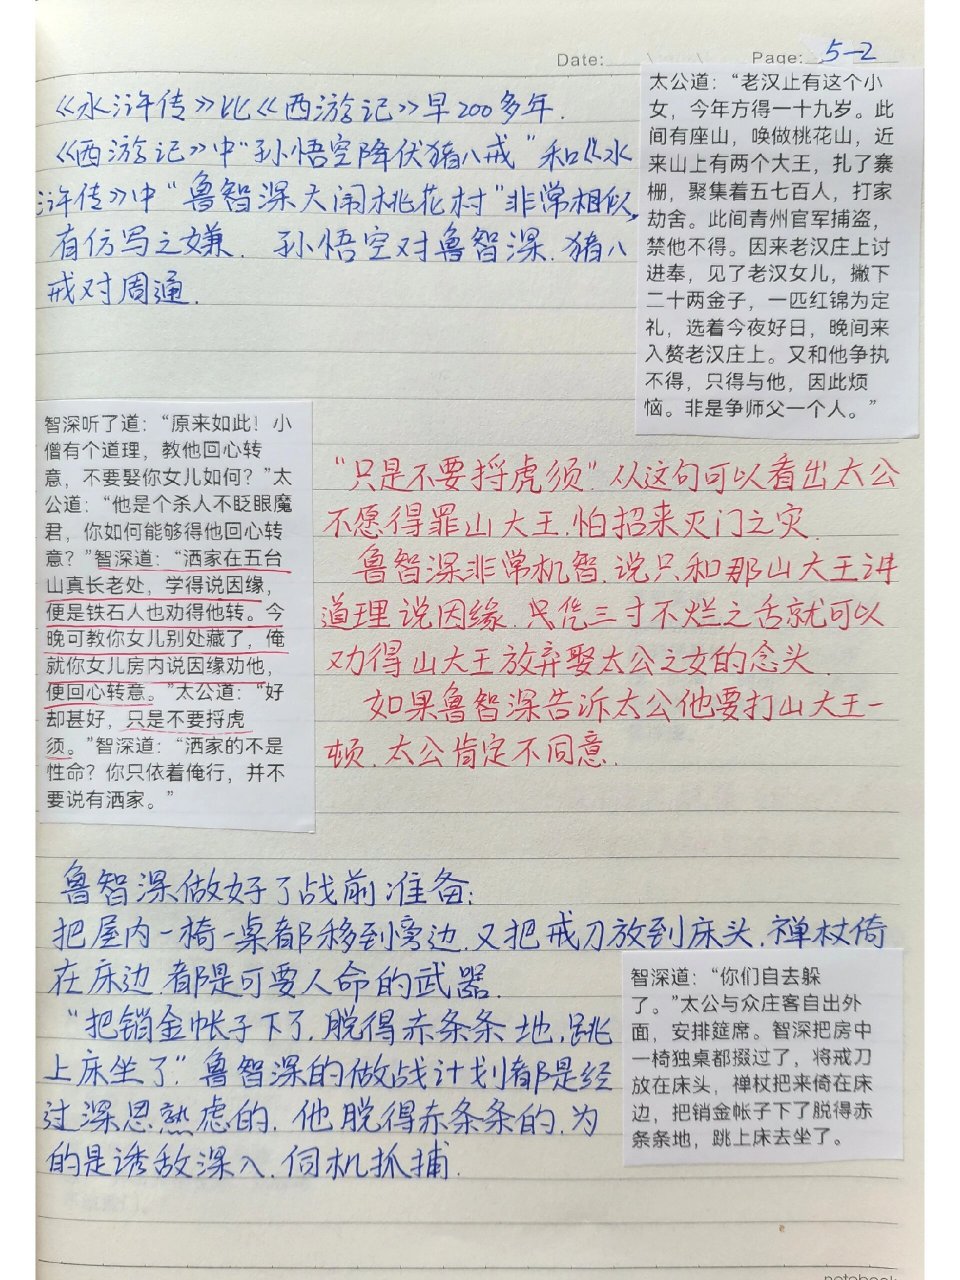 Date:
Page: 5-2
《水浒传》比《西游记》早200多年.
《西游记》中"孙悟空降伏猪八戒"和《水
浒传》中"鲁智深大闹桃花村"非常相似,
有仿写之嫌. 孙悟空对鲁智深.猪八
戒对周通.
太公道：“老汉止有这个小
女，今年方得一十九岁。此
间有座山，唤做桃花山，近
来山上有两个大王，扎了寨
栅，聚集着五七百人，打家
劫舍。此间青州官军捕盗，
禁他不得。因来老汉庄上讨
进奉，见了老汉女儿，撇下
二十两金子，一匹红锦为定
礼，选着今夜好日，晚间来
入赘老汉庄上。又和他争执
不得，只得与他，因此烦
恼。非是争师父一个人。”
智深听了道：“原来如此！小
僧有个道理，教他回心转
意，不要娶你女儿如何？”太
公道：“他是个杀人不眨眼魔
君，你如何能够得他回心转
意？”智深道：“洒家在五台
山真长老处，学得说因缘，
便是铁石人也劝得他转。今
晚可教你女儿别处藏了，俺
就你女儿房内说因缘劝他，
便回心转意。”太公道：“好
却甚好，只是不要捋虎
须。”智深道：“洒家的不是
性命？你只依着俺行，并不
要说有洒家。”
"只是不要捋虎须".从这句可以看出太公
不愿得罪山大王.怕招来灭门之灾.
鲁智深非常机智.说只和那山大王讲
道理说因缘.只凭三寸不烂之舌就可以
劝得山大王放弃娶太公之女的念头.
如果鲁智深告诉太公他要打山大王一
顿.太公肯定不同意.
鲁智深做好了战前准备:
把屋内一椅一桌都移到旁边.又把戒刀放到床头.禅杖倚
在床边.都是可要人命的武器.
"把销金帐子下了.脱得赤条条地,跳
上床坐了".鲁智深的做战计划都是经
过深思熟虑的.他脱得赤条条的.为
的是诱敌深入.伺机抓捕.
智深道：“你们自去躲
了。”太公与众庄客自出外
面，安排筵席。智深把房中
一椅独桌都掇过了，将戒刀
放在床头，禅杖把来倚在床
边，把销金帐子下了脱得赤
条条地，跳上床去坐了。
notebook